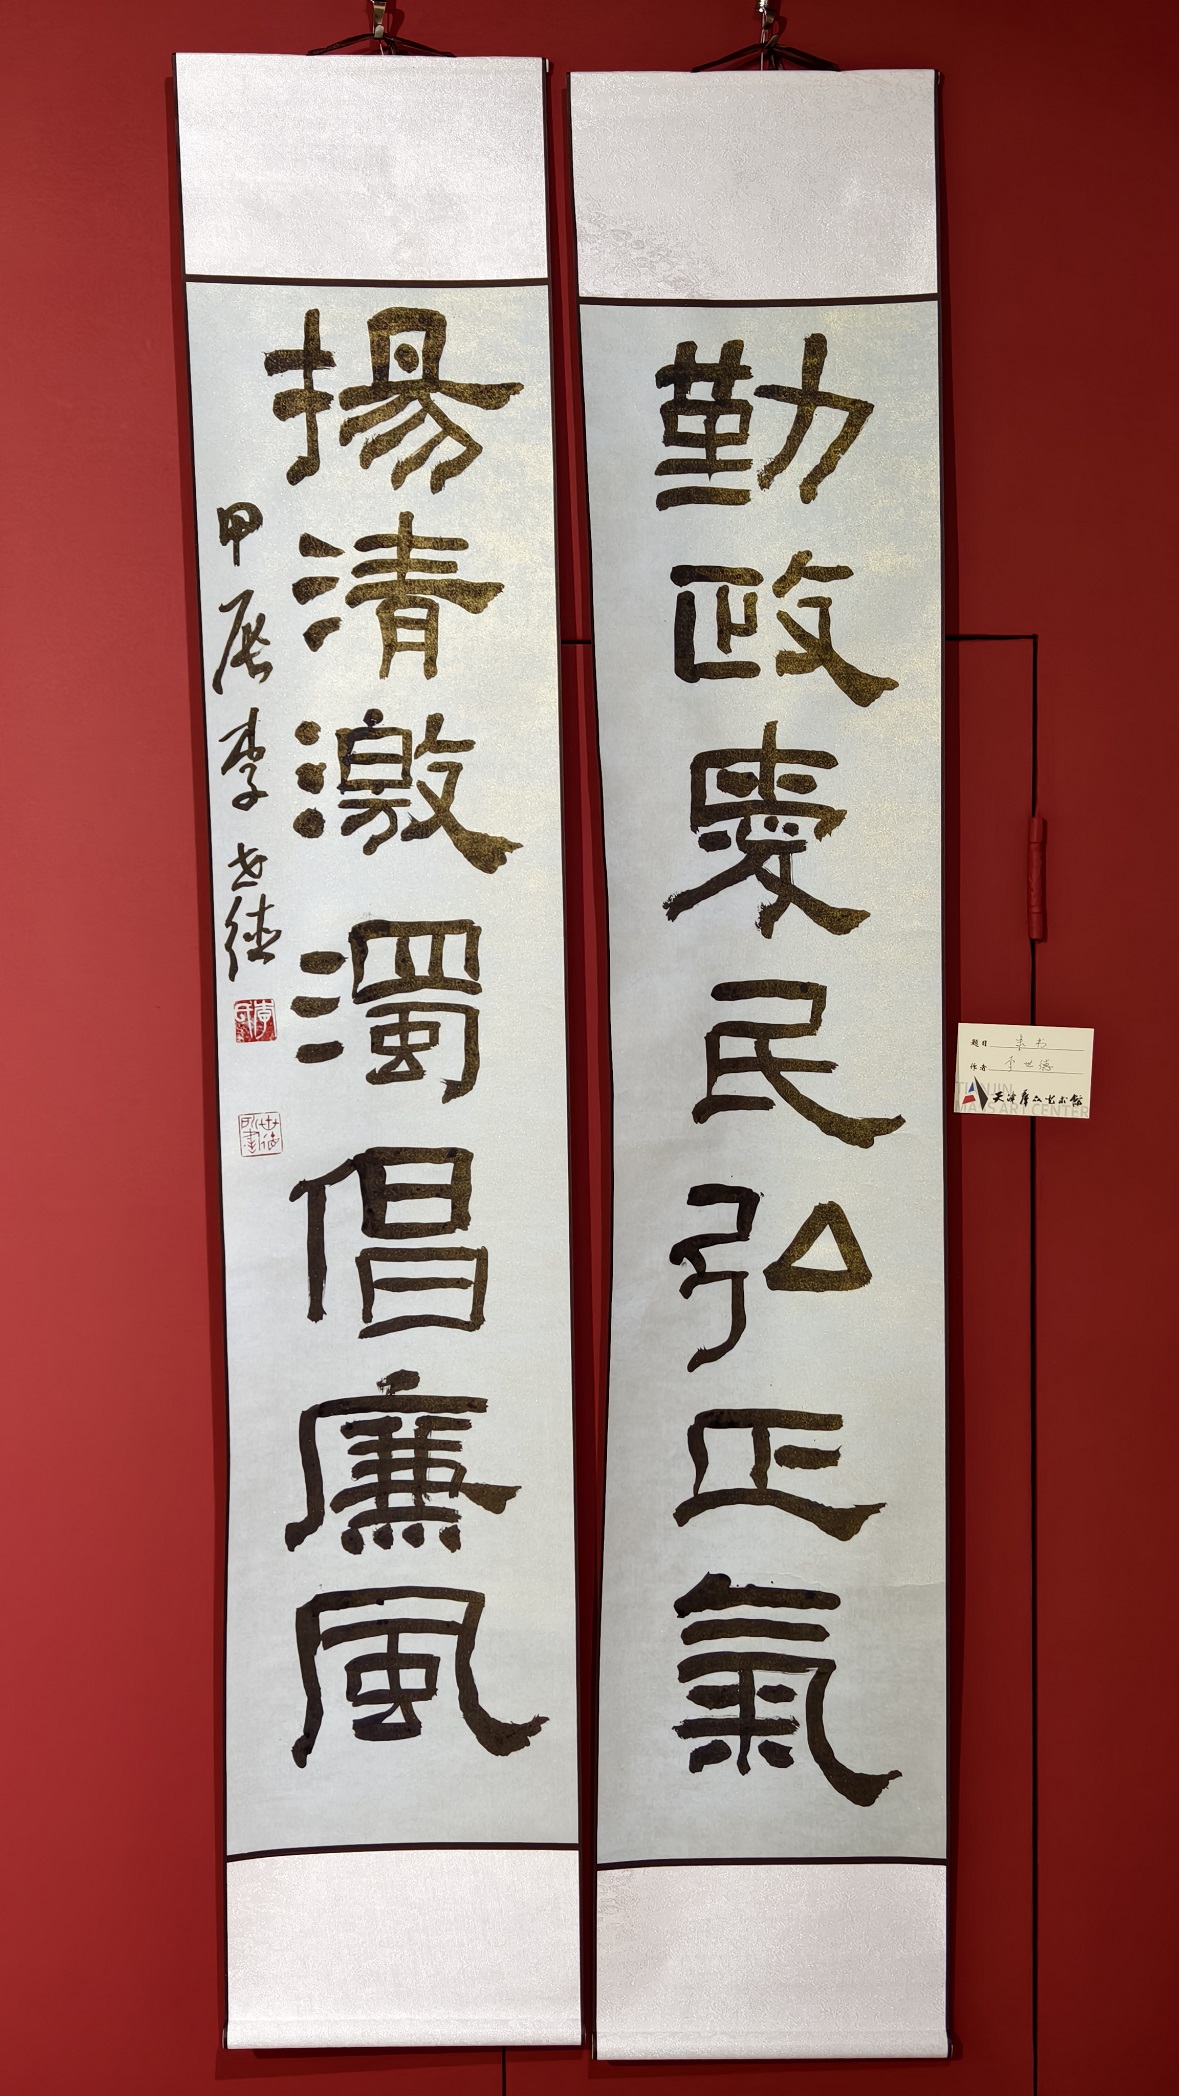 勤政愛民弘正氣
揚清激濁倡廉風
甲辰李世德
題目 隶书
作者 李世德
天津群众艺术館
TIANJIN
MASS ART CENTER